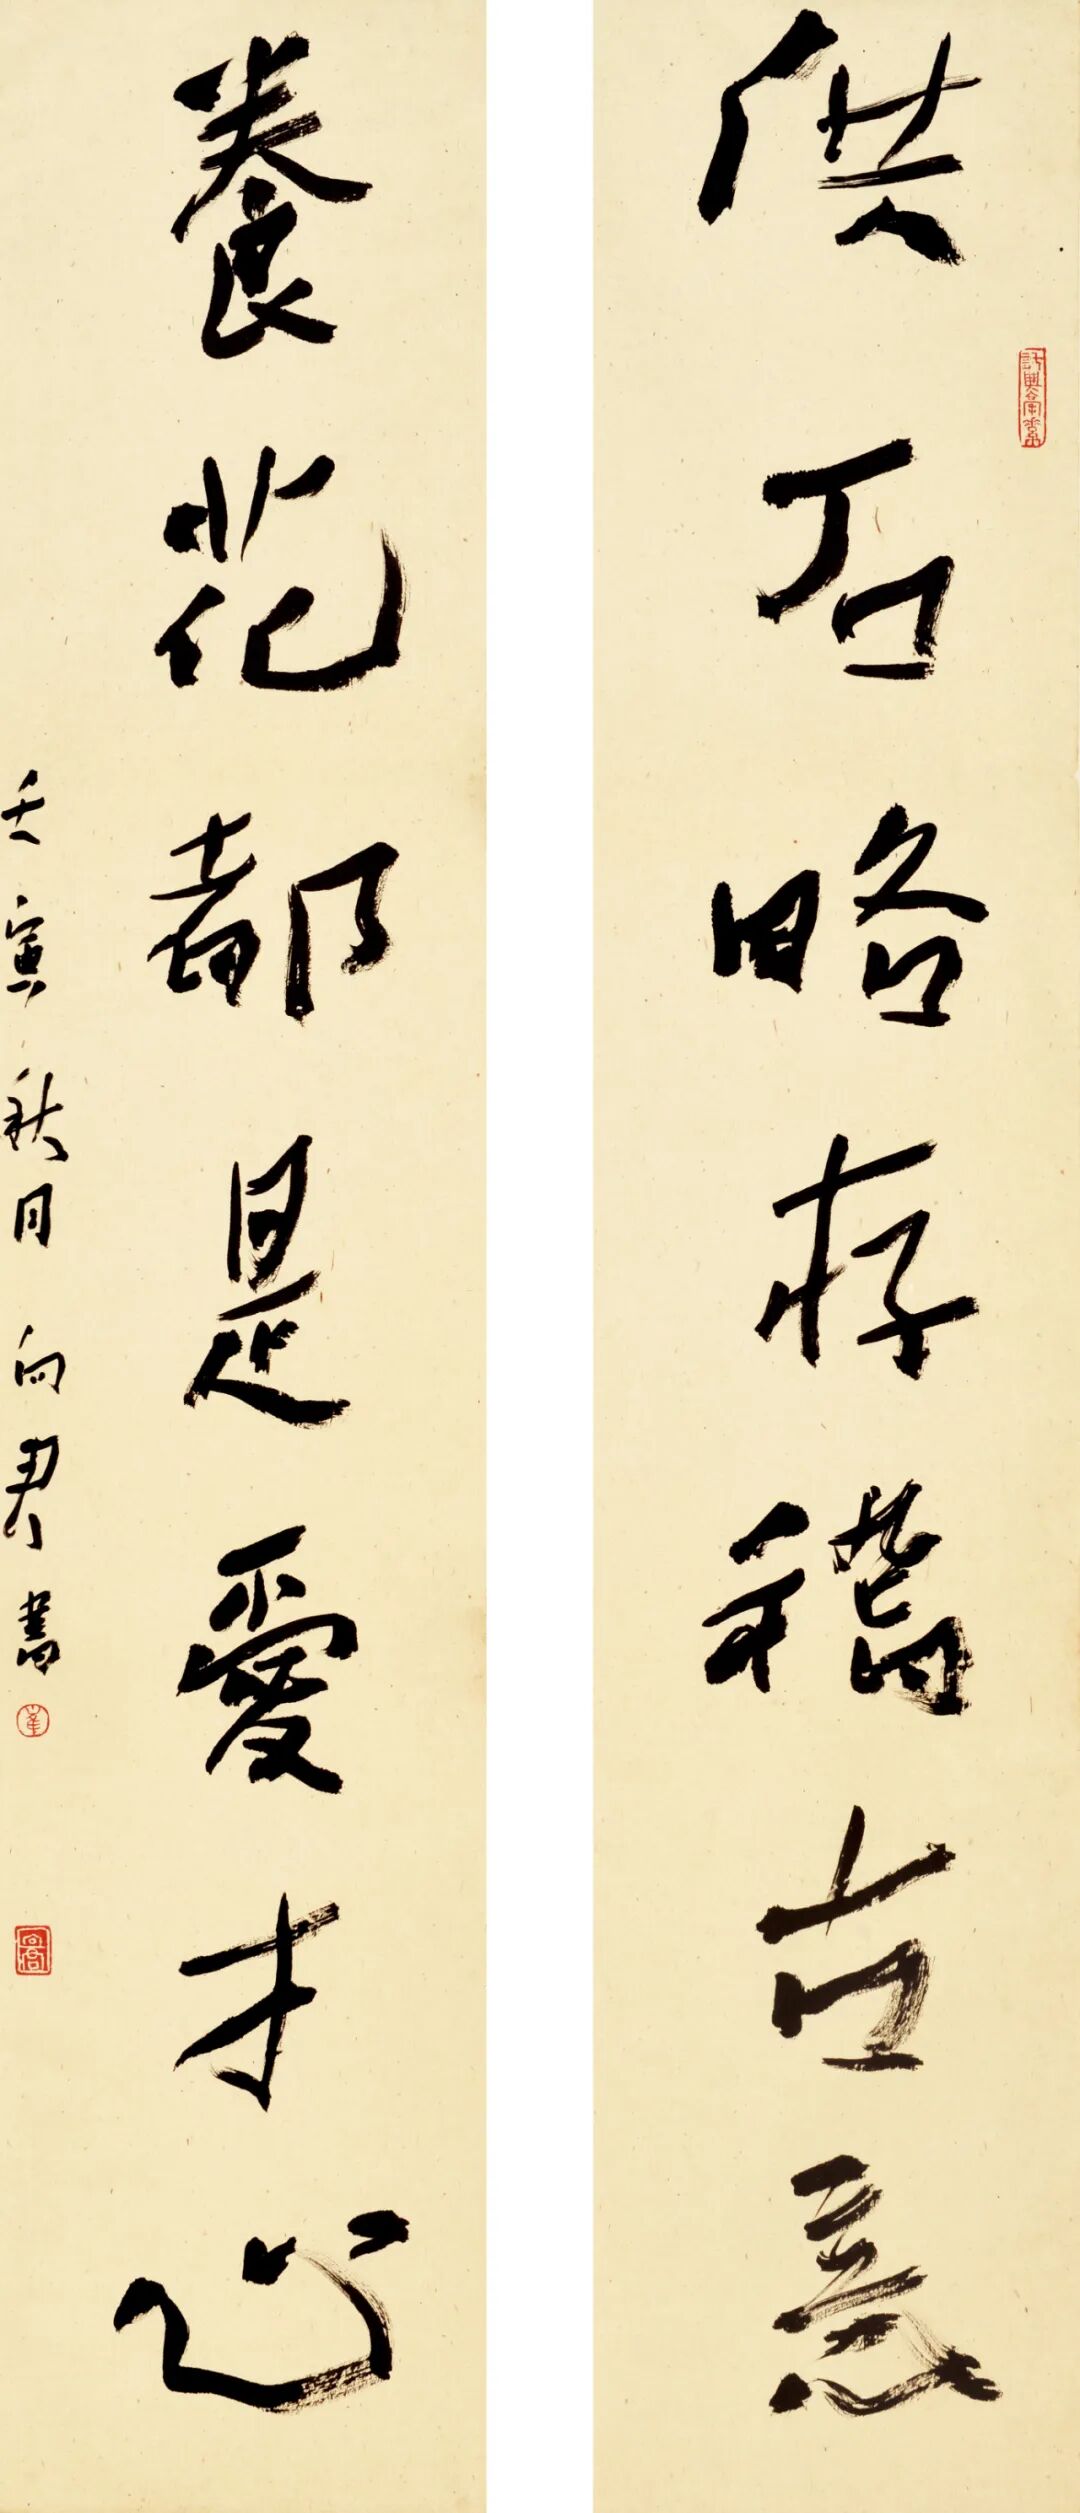 供石略存稽古意
養花都是愛才心
壬寅秋月向君書